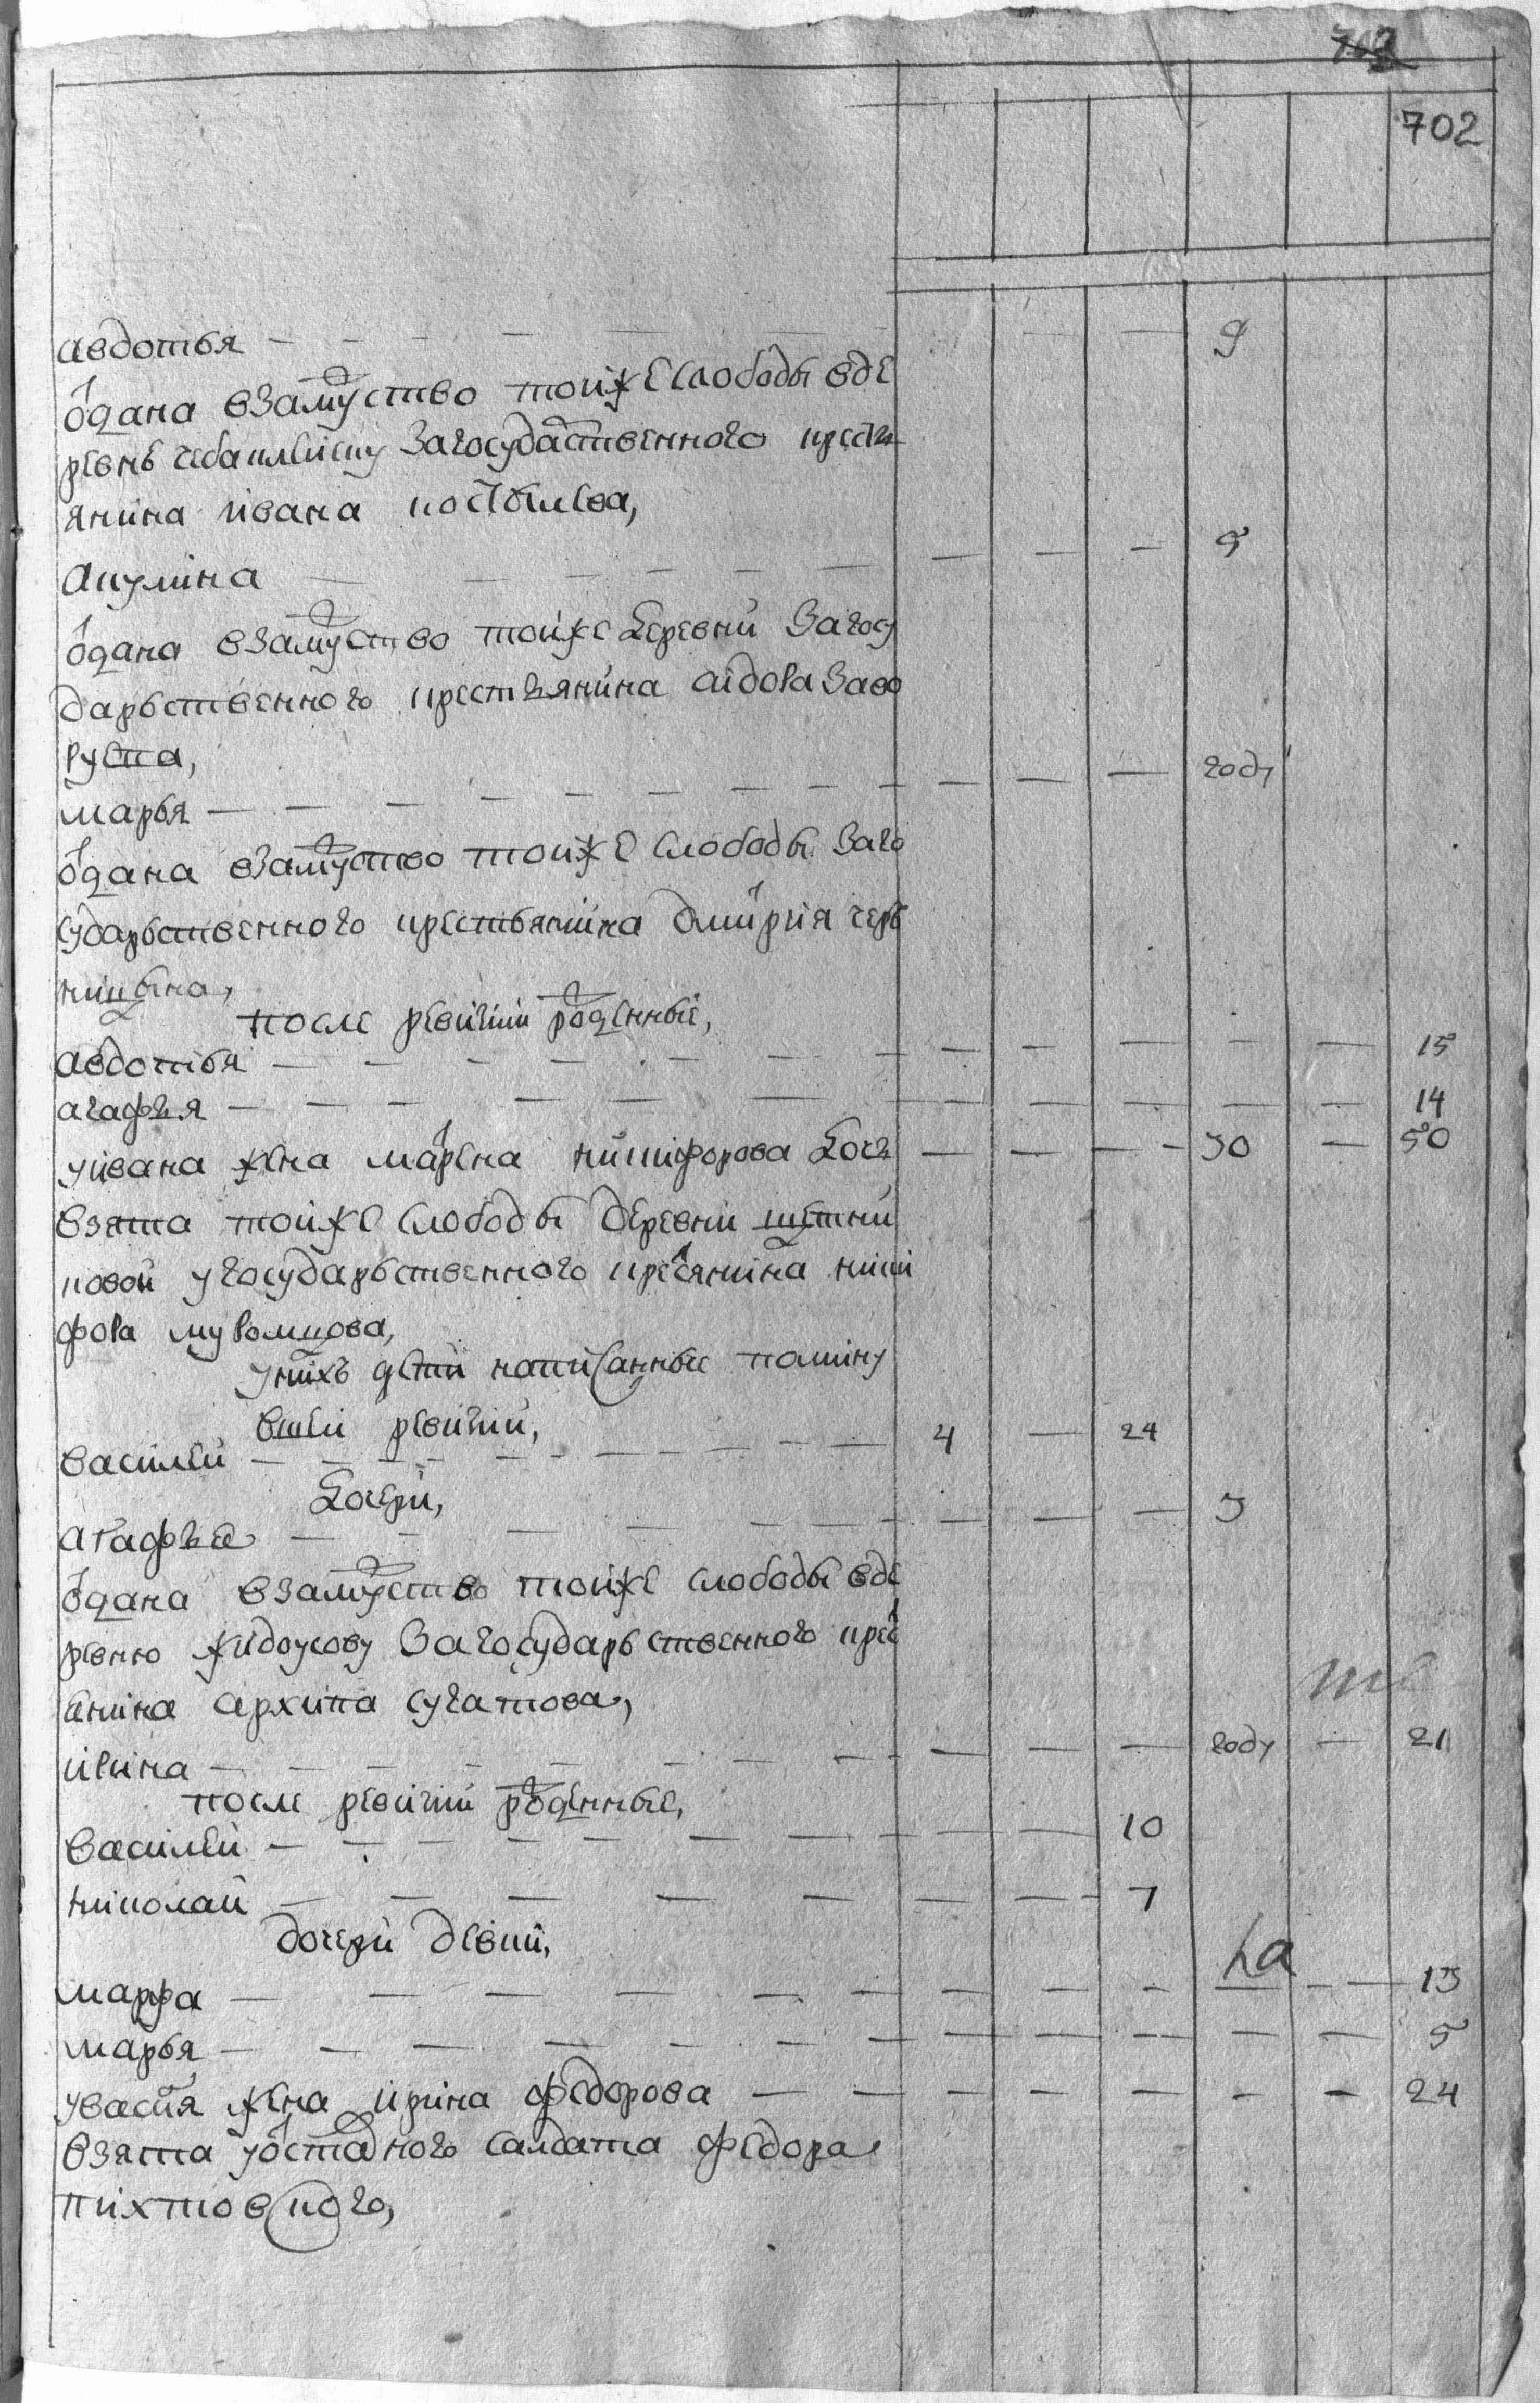 702
авдотья — — — — — — — — — 9
отдана взамуство тойже слободы вде
ревнь за государственного крестъ
янина ивана
акулина — — — — — — — — — 5
отдана взамуство тойже деревни загосу
дарьственного крестъянина сидора заво
руева,
марья — — — — — — — — — — — году
отдана взамуство тойже слободы заго
сударьственного крестьянина дмитрия черe
ницына,
после ревизии рожденные,
авдотья — — — — — — — — — — — — 15
агафья — — — — — — — — — — — 14
уивана жена марена никифорова дочь — — — - 30 — 50
взята тойже слободы деревни щетни
ковой угосударьственного крестянина ники
фора муромцова,
унихъ дети написанные помину
вшей ревизии,
василей — — — — — — — — 4 — 24
дочери,
агафья — — — — — — — — — 3
отдана взамуство тойже слободы вде
ревню загосударьственного крест
янина архипа сугатова,
ирина — — — — — — — — — — году — 21
после ревизии рожденные,
василей — — — — — — — — — — 10
николай — — — — — — — 7
дочери девки,
марфа — — — — — — — — — — — — 13
марья — — — — — — — — — — — — — 5
увасия жена ирина федорова — — — — — - - 24
взята уоставного салдата федора
пихтовского,